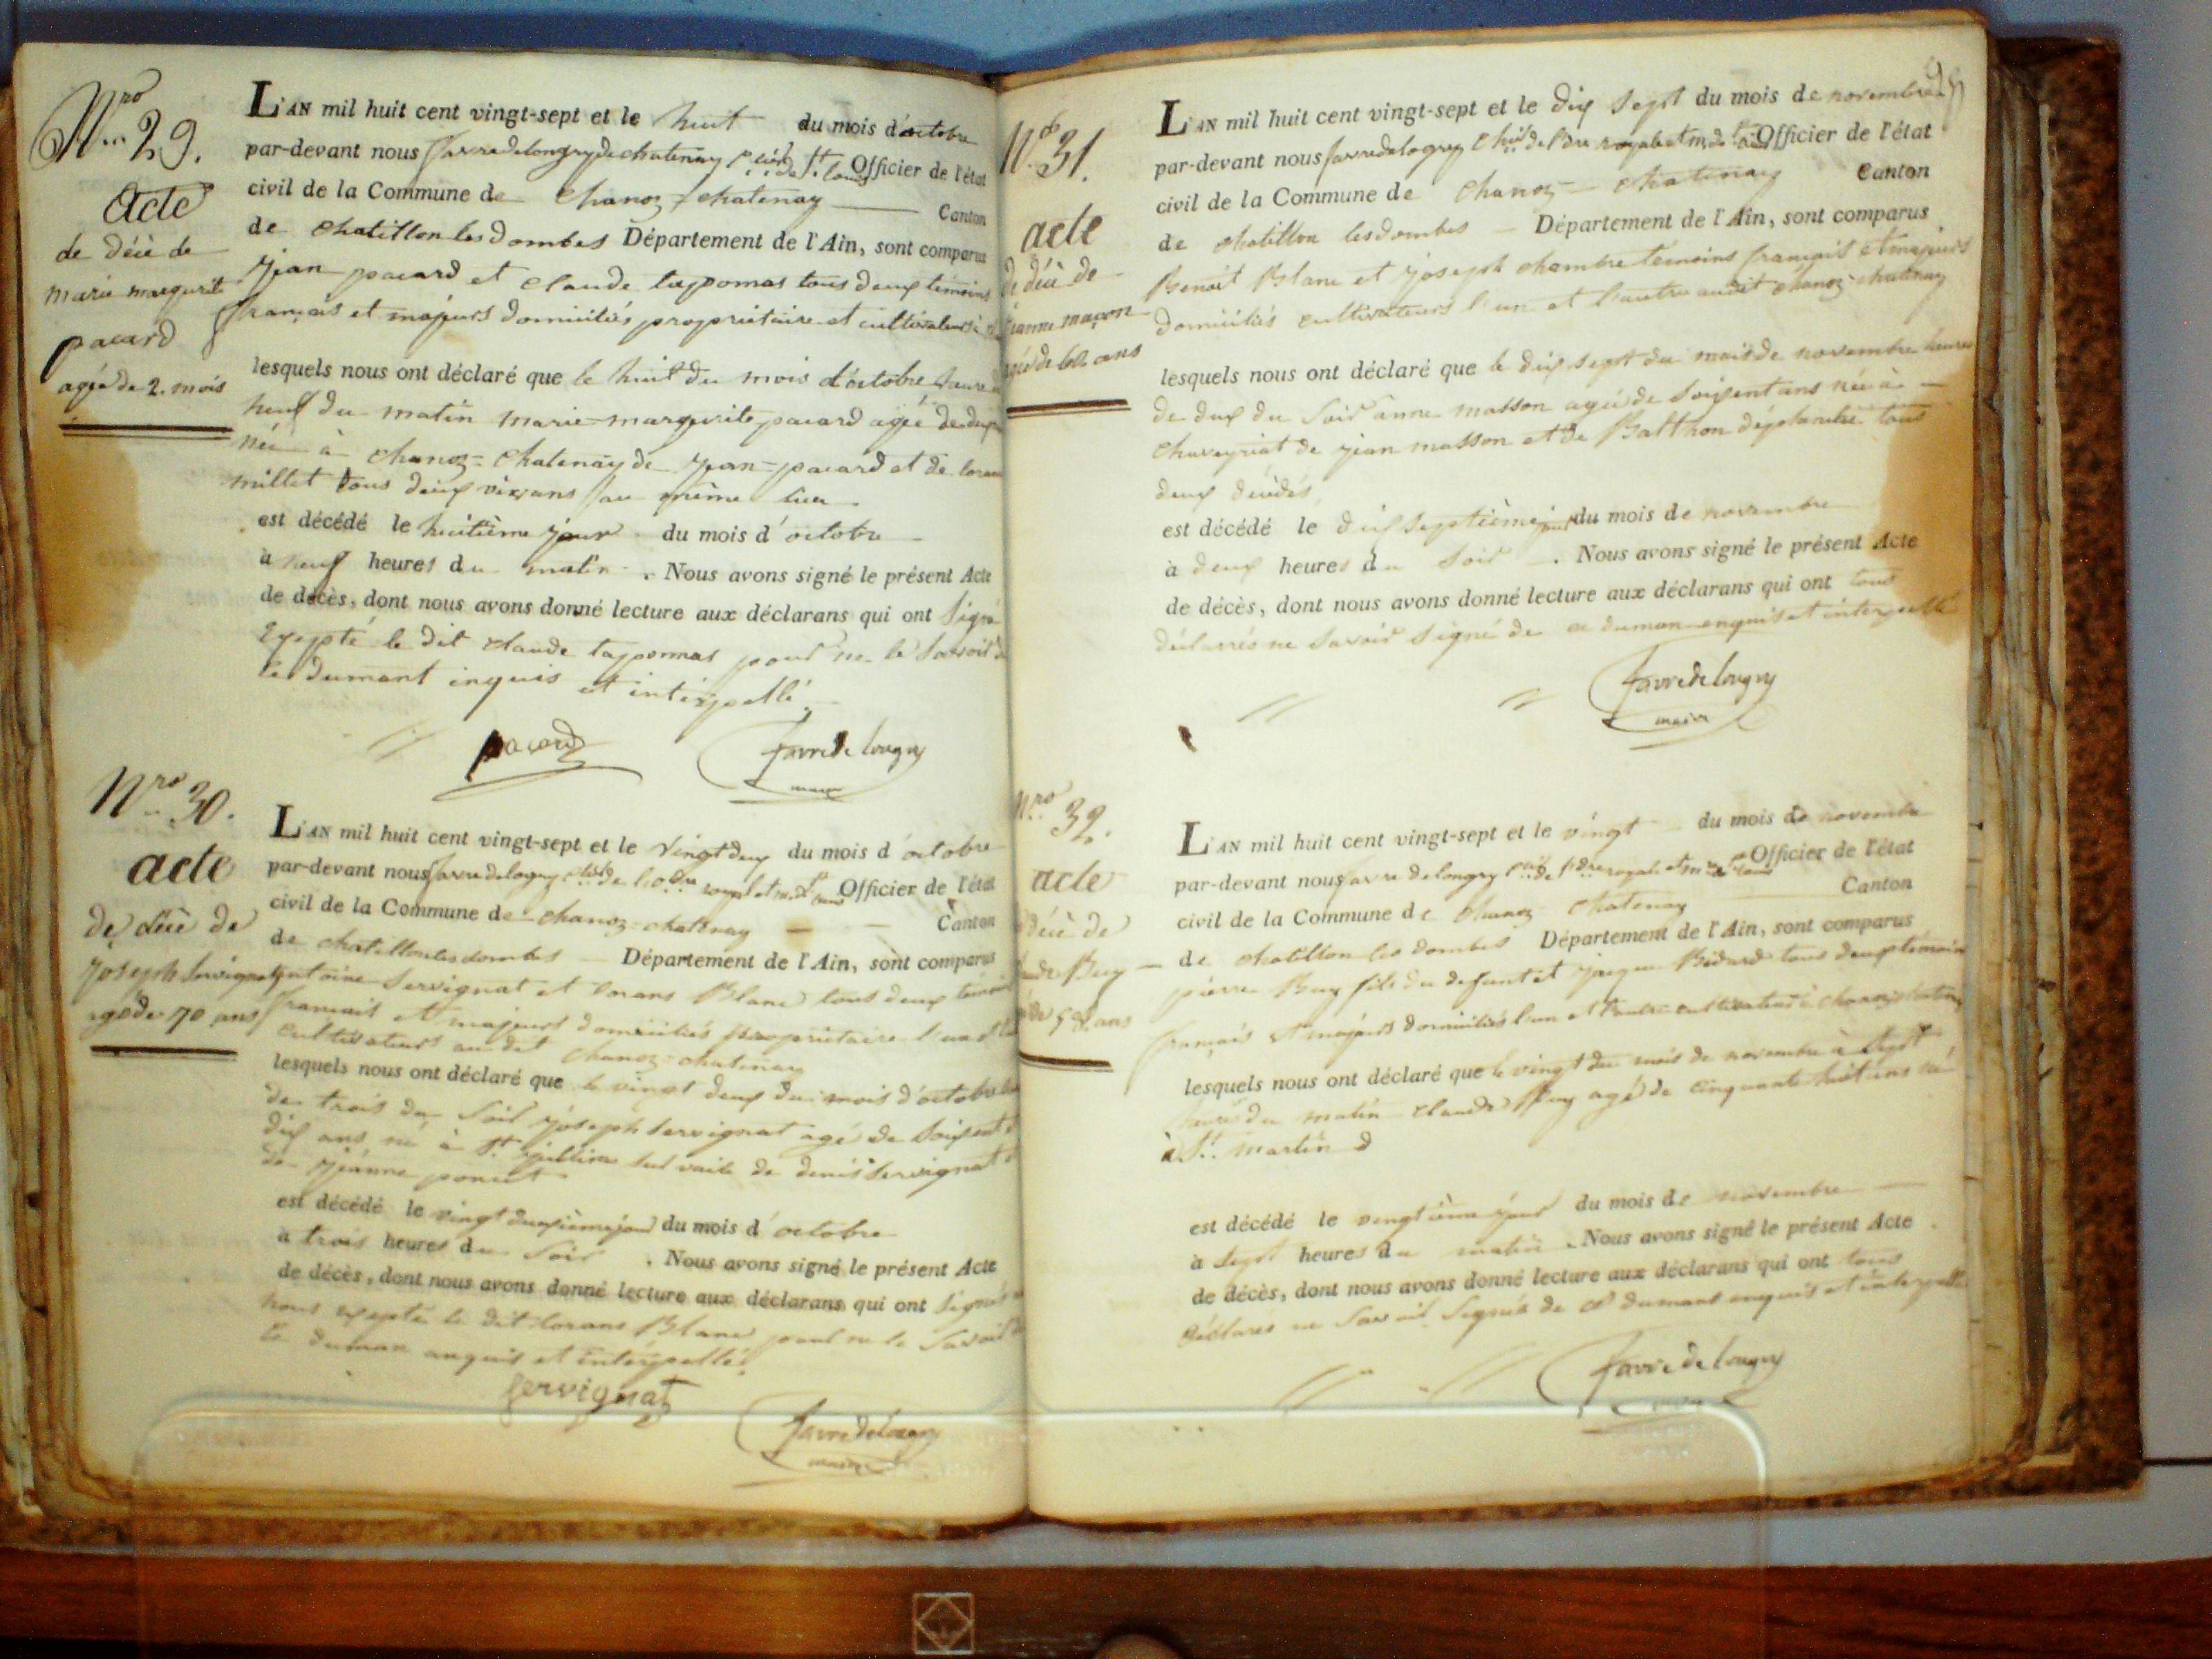 Nro 29.
Acte
de décè de
marie margurite
pacard
agée de 2. mois
L'AN mil huit cent vingt-sept et le huit du mois d'octobre
par-devant nous favre de longry de chatenay Officier de l'état
civil de la Commune de Chanoz-chatenay Canton
de chatillon les dombes Département de l'Ain, sont comparus
jean pacard et claude taponas tous deux témoins
français et majeurs domiciliés propriétaire et cultivateurs
lesquels nous ont déclaré que le huit du mois d'octobre heure
neuf du matin marie-margurite pacard agée de deux
née à chanoz-chatenay de jean-pacard et de
millet tous deux vivans au même lieu
est décédé le huitième jour du mois d'octobre
à neuf heures du matin. Nous avons signé le présent Acte
de décès, dont nous avons donné lecture aux déclarans qui ont signé
Excepté le dit claude taponas pour ne le savoir
ce dumant enquis et interpellé.
pacard favre de longry
maire
Nro 30.
acte
de décè de
joseph servignat
agé de 70 ans
L'AN mil huit cent vingt-sept et le vingt deux du mois d'octobre
par-devant nous favre de longry Officier de l'état
civil de la Commune de chanoz-chatenay Canton
de chatillon les dombes Département de l'Ain, sont comparus
antoine servignat et lorans Blanc tous deux témoins
français et majeurs domiciliés propriétaire l'un et
cultivateurs audit chanoz-chatenay
lesquels nous ont déclaré que le vingt deux du mois d'octobre
de trois du soir joseph servignat agé de soixente
dix ans né à St. julliin sur vaile de denis servignat
de jeanne poncet
est décédé le vingt deuxième jour du mois d'octobre
à trois heures du soir. Nous avons signé le présent Acte
de décès, dont nous avons donné lecture aux déclarans qui ont signés
nous excepté le dit lorans Blanc pour ne le savoir
ce duman enquis et interpellé.
servignat
favre de longry
maire
No. 31.
acte
de décè de
jeanne maçon
agée de 60 ans
L'AN mil huit cent vingt-sept et le dix sept du mois de novembre
par-devant nous favre de logry Officier de l'état
civil de la Commune de Chanoz-chatenay Canton
de chatillon les dombes Département de l'Ain, sont comparus
Benoit Blanc et joseph chambre temoins français et majeurs
domiciliés cultivateurs l'un et l'autre audit chanoz-chatenay
lesquels nous ont déclaré que le dix sept du mois de novembre heures
de deux du soir anne masson agée de soixent ans née à
chaveyriat de jean masson et de tous
deux décédés
est décédé le dix septième jour du mois de novembre
à deux heures du soir. Nous avons signé le présent Acte
de décès, dont nous avons donné lecture aux déclarans qui ont tous
déclarrés ne savoir signé de ce duman enquis et interpellé
favre de longry
maire
Nro 32.
acte
décè de
Buy
58 ans
L'AN mil huit cent vingt-sept et le vingt du mois de novembre
par-devant nous favre de longry Officier de l'état
civil de la Commune de Chanoz-chatenay Canton
de chatillon les dombes Département de l'Ain, sont comparus
pierre Buy fils du defunt et jacque Bidard tous deux témoin
français et majeurs domiciliés l'un et l'autre cultivateur à chanoz chatenay
lesquels nous ont déclaré que le vingt du mois de novembre à sept
heures du matin claude Buy agé de cinquante huit ans né
à St. martin d
est décédé le vingtième jour du mois de novembre
à sept heures du matin. Nous avons signé le présent Acte
de décès, dont nous avons donné lecture aux déclarans qui ont tous
déclares ne savoir signés de ce dumant enquis et interpellé
favre de longry
maire